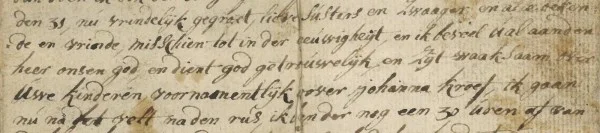 den 31, nu vrindelijk gegroet, lieve susters en zwaager, en al e beken
de en vrinde, misschien tot in der eeuwigheijt, en ik beveel u al aan den
heer onsen god, en dient god getrouwelijk, en zijt waaksaam over
uwe kinderen voornaamentlijk over johanna kroes, ik gaan
nu na het velt na den rus, ik ben der nog een 30 uren af van